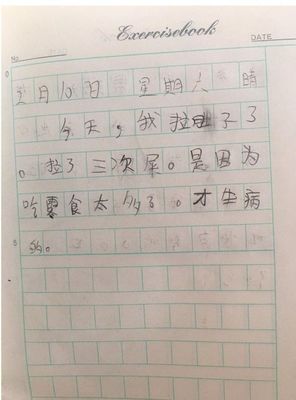 Exercisebook
No
DATE
月10日 星期六 晴
今天,我拉肚子了
。拉了三次屎。是因为
吃零食太多了。才生病
的。